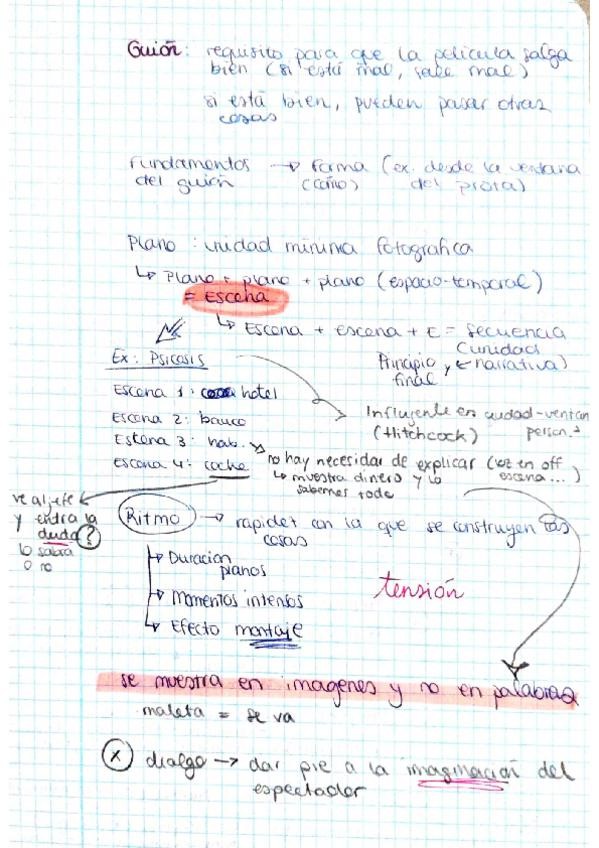 Guión: requisito para que la película salga
bien (si está mal, sale mal)
si está bien, pueden pasar otras
cosas
Fundamentos → Forma (ex. desde la ventana
del guión (cómo) del prota)
Plano: unidad mínima fotográfica
↳ Plano + plano + plano (espacio-temporal)
= Escena
↳ Escena + escena + E = secuencia
(unidad
Principio y ← narrativa)
final
Ex: Psicosis
Escena 1: hotel
Escena 2: banco
Escena 3: hab.
Escena 4: coche
Influyente en ciudad-ventan
(Hitchcock) person.
no hay necesidar de explicar (voz en off
↳ muestra dinero y lo escena...)
sabemos todo
ve al jefe
y entra la
duda?
lo sabrá
o no
Ritmo → rapidez con la que se construyen las
cosas
↳ Duracion
planos
↳ Momentos intensos
↳ Efecto montaje
tensión
se muestra en imagenes y no en palabras
maleta = se va
(x) dialgo → dar pie a la imaginación del
espectador